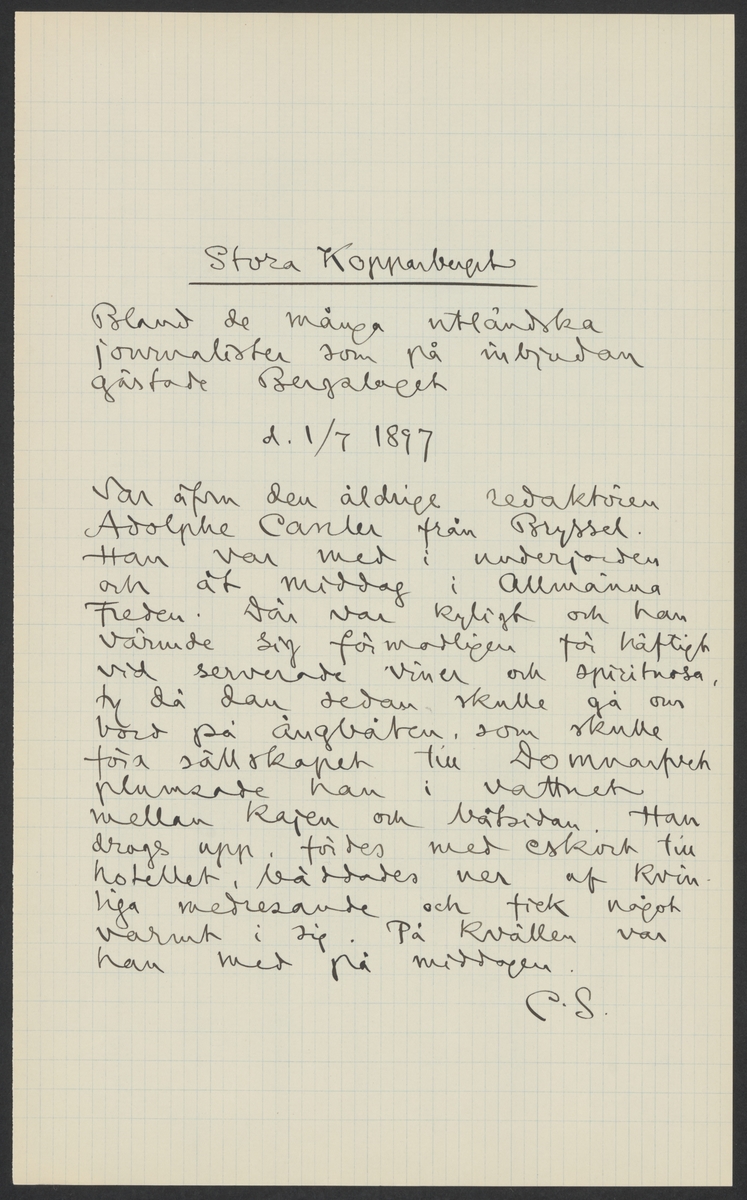 Stora Kopparberget
Bland de många utländska
journalister som på inbjudan
gästade Bergslaget
d. 1/7 1897
Var äfven den åldrige redaktören
Adolphe Canler från Bryssel.
Han var med i underjorden
och åt middag i Allmänna
Freden. Där var kyligt och han
värmde sig förmodligen för häftigt
vid serverade viner och spirituosa,
ty då dan sedan skulle gå om
bord på ångbåten, som skulle
föra sällskapet till Domnarfvet
plumsade han i vattnet
mellan kajen och båtsidan. Han
drogs upp, fördes med eskort till
hotellet, bäddades ner af kvin-
liga medresande och fick något
varmt i sig. På kvällen var
han med på middagen.
C.S.